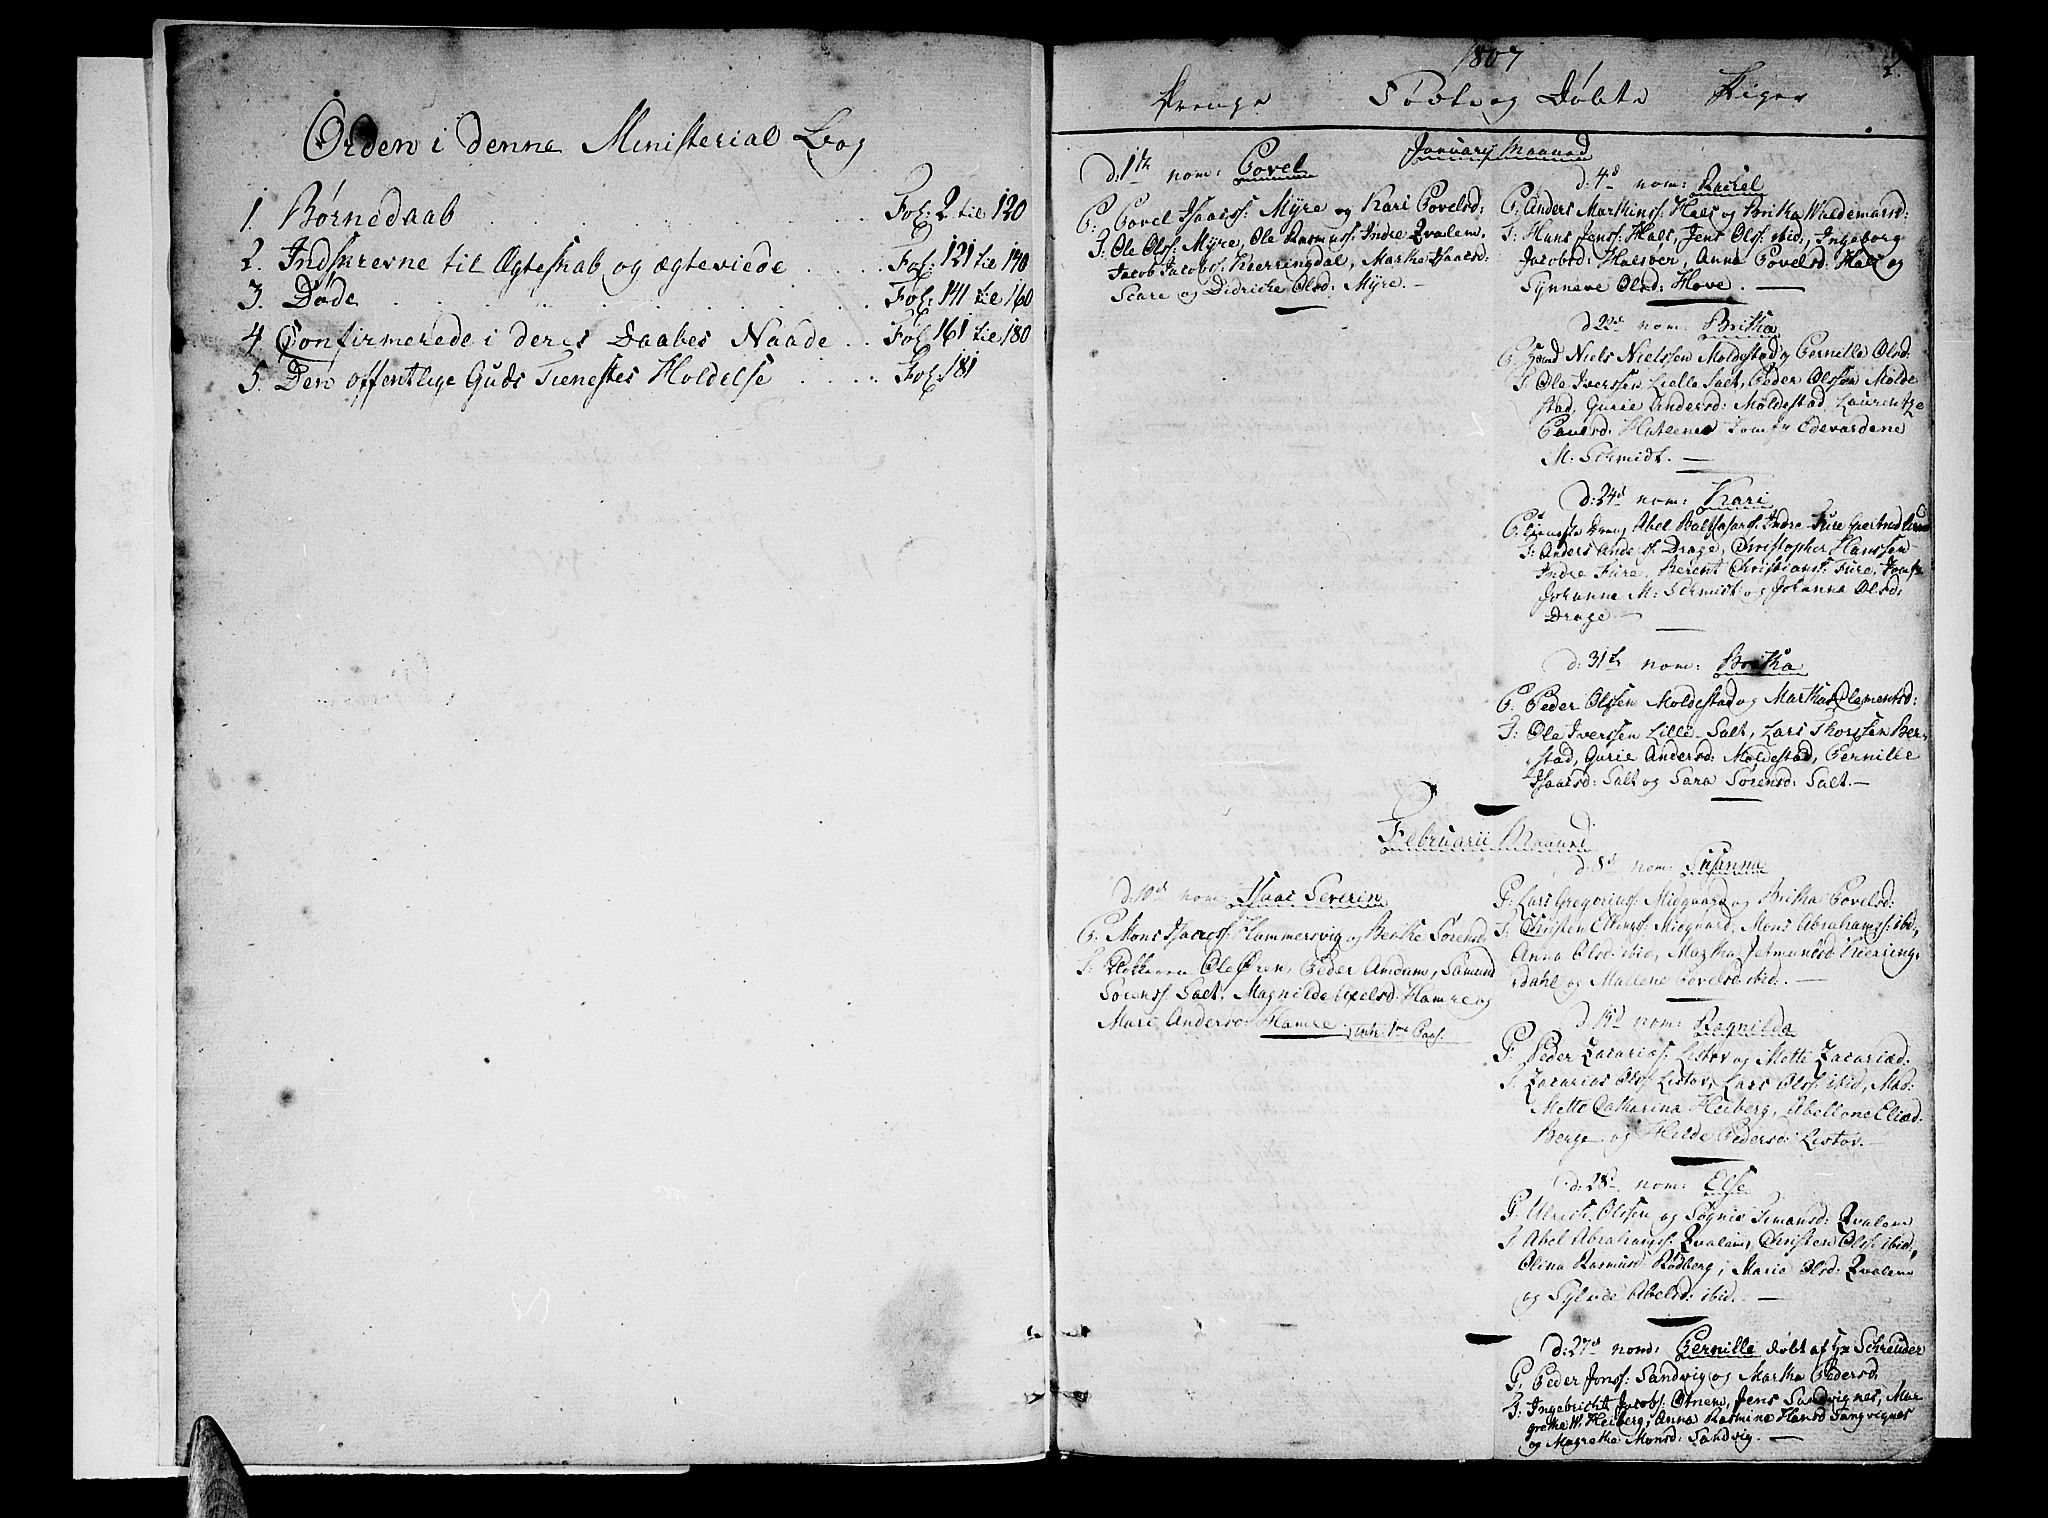 Orden i denne Ministerial Bog
1. Børnedaab . . . Fol: 2 til 120
2. Indskrevne til Ægteskab og ægteviede . . . . Fol: 121 til 140
3. Døde . . . Fol: 141 til 160
4. Confirmerede i deres Daabes Naade . . Fol: 161 til 180
5. Den offentlige Guds Tienestes Holdelse . . . . . Fol: 181
1807
2.
Drenge Fødte og Døbte Piger
Januarij Maaned
d: 1te nom: Povel
P: Povel Isaacss: Myre og Kari Povelsd:
T: Ole Olss: Myre, Ole Rasmuss: Indre Qvalem,
Jacob Jacobs: Kierringdal, Marthe Isaacsd:
Scare og Didricke Olsd: Myre. —
d: 4d nom: Rachel
P: Anders Marthinss: Hals og Britha Waldemarsd:
T: Hans Jenss: Hals, Jens Olss: ibid:, Ingeborg
Jacobsd: Halsøer, Anna Povelsd: Hals og
Synneve Olsd: Hove. —
d: 22d nom: Britha
P: Niels Nielssen Moldestad og Pernille Olsd:
T: Ole Iverssen Lille Salt, Peder Olssen Molde
stad, Gurie Andersd: Moldestad, Laurentze
Paulsd: Hatlenes Jomfr Edevardene
M: Schmidt. —
d: 24d nom: Kari
P: Abel Balthasars: Indre Fure
T: Anders Anders: Drage, Christopher Hanssen
Indre Fure, Berent Christians: Fure, Jomfr
Johanne M: Schmidt og Johanna Olsd:
Drage —
d: 31te nom: Britha
P: Peder Olssen Moldestad og Martha Clementsd:
T: Ole Iverssen Lille Salt, Lars Thorssen Ber-
stad, Gurie Andersd: Moldestad, Pernille
Isaacsd: Salt og Sara Sørensd: Salt. —
Februarii Maaned
d: 10d nom: Isaac Severin
P: Mons Isaacss: Hammersvig og Berthe Sørensd:
T: Klokkeren Ole Øren, Peder Amdam, Samund
Sørenss: Salt, Magnilde Axelsd: Hamre og
Mari Andersd: Hamre.
d: 8d nom: Susanna
P: Lars Gregoriuss: Miegaard og Britha Povelsd:
T: Christen Ellings: Miegaard, Mons Abrahamss: ibid,
Anna Olsd: ibid, Martha Jetmundsd Kierring-
dahl og Mallene Povelsd: ibid. —
d: 15d nom: Ragnilda
P: Peder Zacarias: Listov og Mette Zacariæd:
T: Zacarias Olss: Listov, Lars Olss: ibid, Mad:
Mette Catharina Heiberg, Abellone Eliæd:
Berge og Hilde Pedersd: Listov. —
d: 28d nom: Else
P: Ulrich Olssen og Søgnie Simonsd: Qvalem
T: Abel Abrahams: Qvalem, Christen Olss: ibid,
Olina Rasmusd Rødberg, Maria Olsd: Qvalem
og Sylvie Abelsd: ibid. —
d: 27d nom: Pernille døbt af Hr Schreuder
P: Peder Jonss: Sandvig og Martha Pedersd
T: Ingebricht Jacobs: Otnem, Jens Sandvignes, Mar
grethe W. Heiberg, Anna Rasmine Hansd Tangvignes
og Magrethe Monsd: Sandvig. —